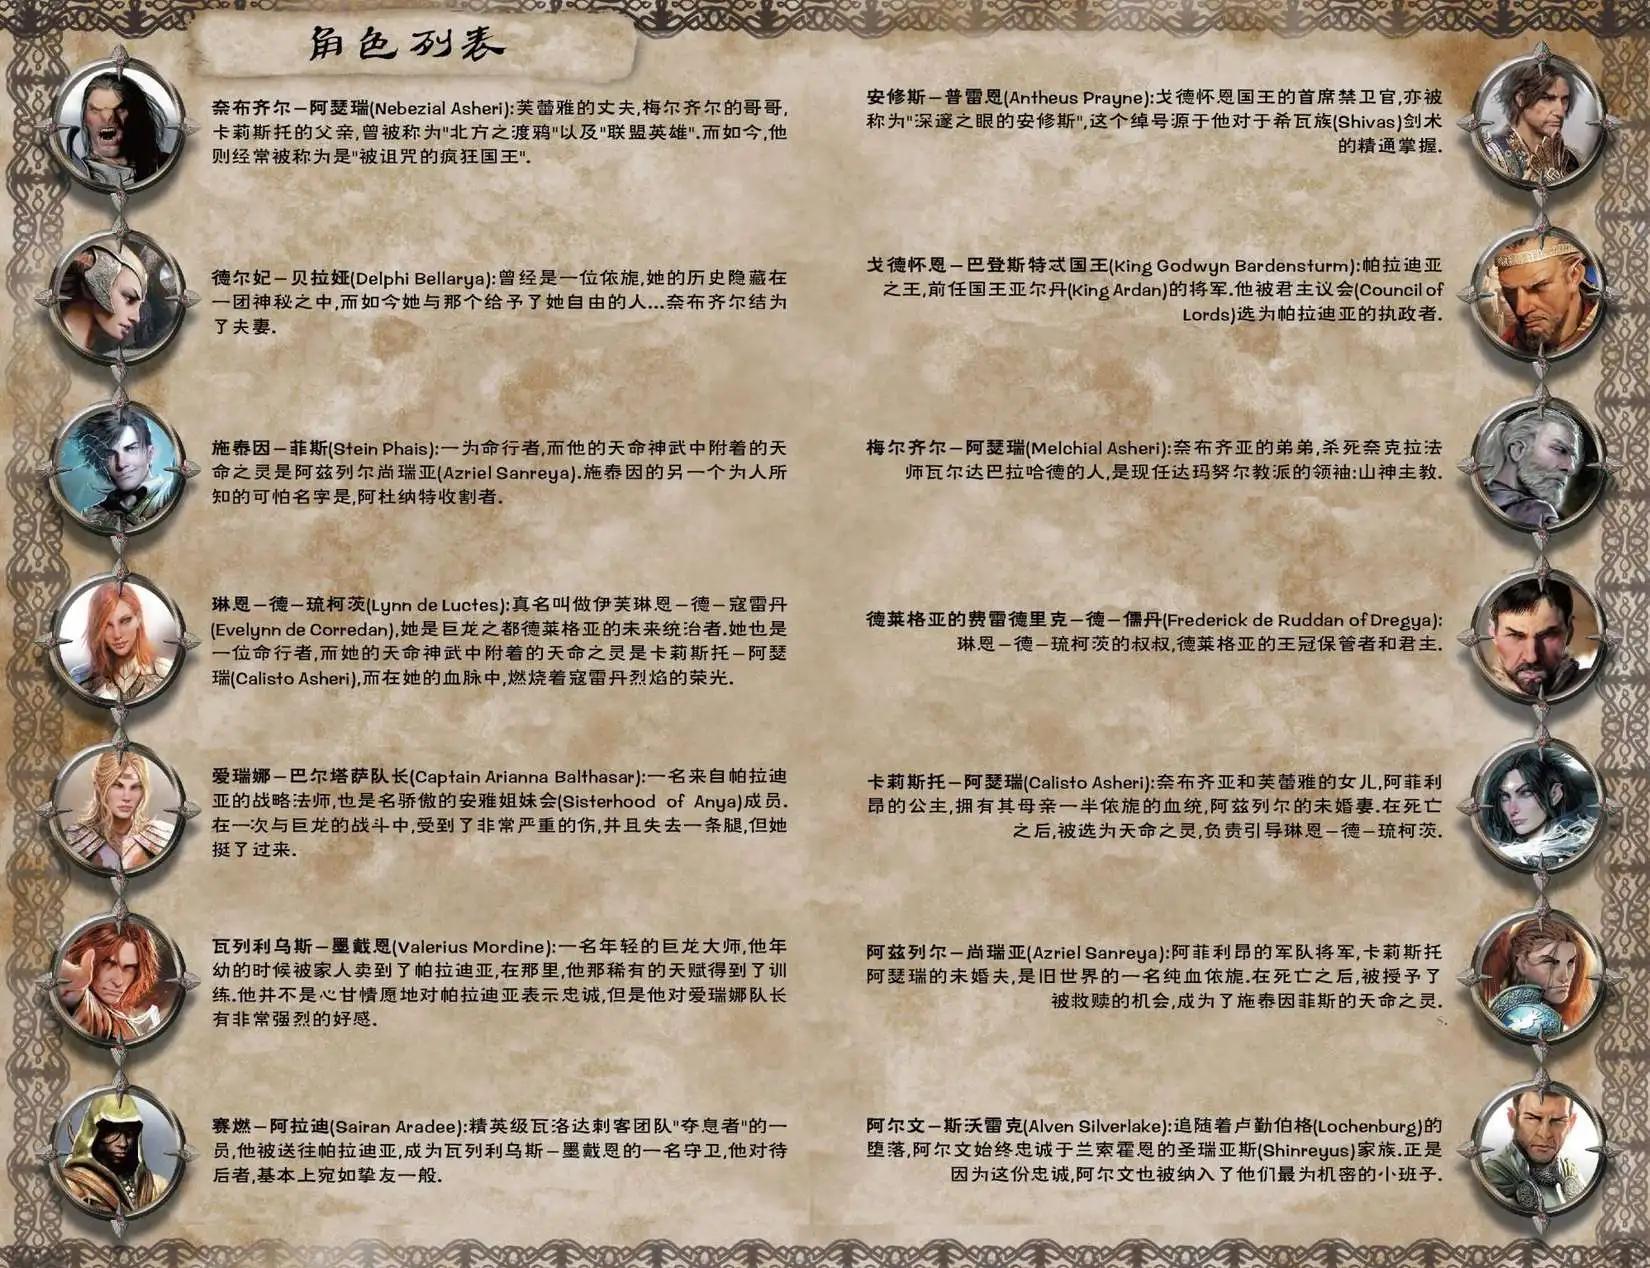 角色列表
奈布齐尔－阿瑟瑞(Nebezial Asheri):芙蕾雅的丈夫,梅尔齐尔的哥哥,
卡莉斯托的父亲,曾被称为"北方之渡鸦"以及"联盟英雄".而如今,他
则经常被称为是"被诅咒的疯狂国王".
德尔妃－贝拉娅(Delphi Bellarya):曾经是一位依旎,她的历史隐藏在
一团神秘之中,而如今她与那个给予了她自由的人...奈布齐尔结为
了夫妻.
施泰因－菲斯(Stein Phais):一为命行者,而他的天命神武中附着的天
命之灵是阿兹列尔尚瑞亚(Azriel Sanreya).施泰因的另一个为人所
知的可怕名字是,阿杜纳特收割者.
琳恩－德－琉柯茨(Lynn de Luctes):真名叫做伊芙琳恩－德－寇雷丹
(Evelynn de Corredan),她是巨龙之都德莱格亚的未来统治者.她也是
一位命行者,而她的天命神武中附着的天命之灵是卡莉斯托－阿瑟
瑞(Calisto Asheri),而在她的血脉中,燃烧着寇雷丹烈焰的荣光.
爱瑞娜－巴尔塔萨队长(Captain Arianna Balthasar):一名来自帕拉迪
亚的战略法师,也是名骄傲的安雅姐妹会(Sisterhood of Anya)成员.
在一次与巨龙的战斗中,受到了非常严重的伤,并且失去一条腿,但她
挺了过来.
瓦列利乌斯－墨戴恩(Valerius Mordine):一名年轻的巨龙大师,他年
幼的时候被家人卖到了帕拉迪亚,在那里,他那稀有的天赋得到了训
练.他并不是心甘情愿地对帕拉迪亚表示忠诚,但是他对爱瑞娜队长
有非常强烈的好感.
赛燃－阿拉迪(Sairan Aradee):精英级瓦洛达刺客团队"夺息者"的一
员,他被送往帕拉迪亚,成为瓦列利乌斯－墨戴恩的一名守卫,他对待
后者,基本上宛如挚友一般.
安修斯－普雷恩(Antheus Prayne):戈德怀恩国王的首席禁卫官,亦被
称为"深邃之眼的安修斯",这个绰号源于他对于希瓦族(Shivas)剑术
的精通掌握.
戈德怀恩－巴登斯特忒国王(King Godwyn Bardensturm):帕拉迪亚
之王,前任国王亚尔丹(King Ardan)的将军.他被君主议会(Council of
Lords)选为帕拉迪亚的执政者.
梅尔齐尔－阿瑟瑞(Melchial Asheri):奈布齐亚的弟弟,杀死奈克拉法
师瓦尔达巴拉哈德的人,是现任达玛努尔教派的领袖:山神主教.
德莱格亚的费雷德里克－德－儒丹(Frederick de Ruddan of Dregya):
琳恩－德－琉柯茨的叔叔,德莱格亚的王冠保管者和君主.
卡莉斯托－阿瑟瑞(Calisto Asheri):奈布齐亚和芙蕾雅的女儿,阿菲利
昂的公主,拥有其母亲一半依旎的血统,阿兹列尔的未婚妻.在死亡
之后,被选为天命之灵,负责引导琳恩－德－琉柯茨.
阿兹列尔－尚瑞亚(Azriel Sanreya):阿菲利昂的军队将军,卡莉斯托
阿瑟瑞的未婚夫,是旧世界的一名纯血依旎.在死亡之后,被授予了
被救赎的机会,成为了施泰因菲斯的天命之灵.
s.
阿尔文－斯沃雷克(Alven Silverlake):追随着卢勤伯格(Lochenburg)的
堕落,阿尔文始终忠诚于兰索霍恩的圣瑞亚斯(Shinreyus)家族.正是
因为这份忠诚,阿尔文也被纳入了他们最为机密的小班子.